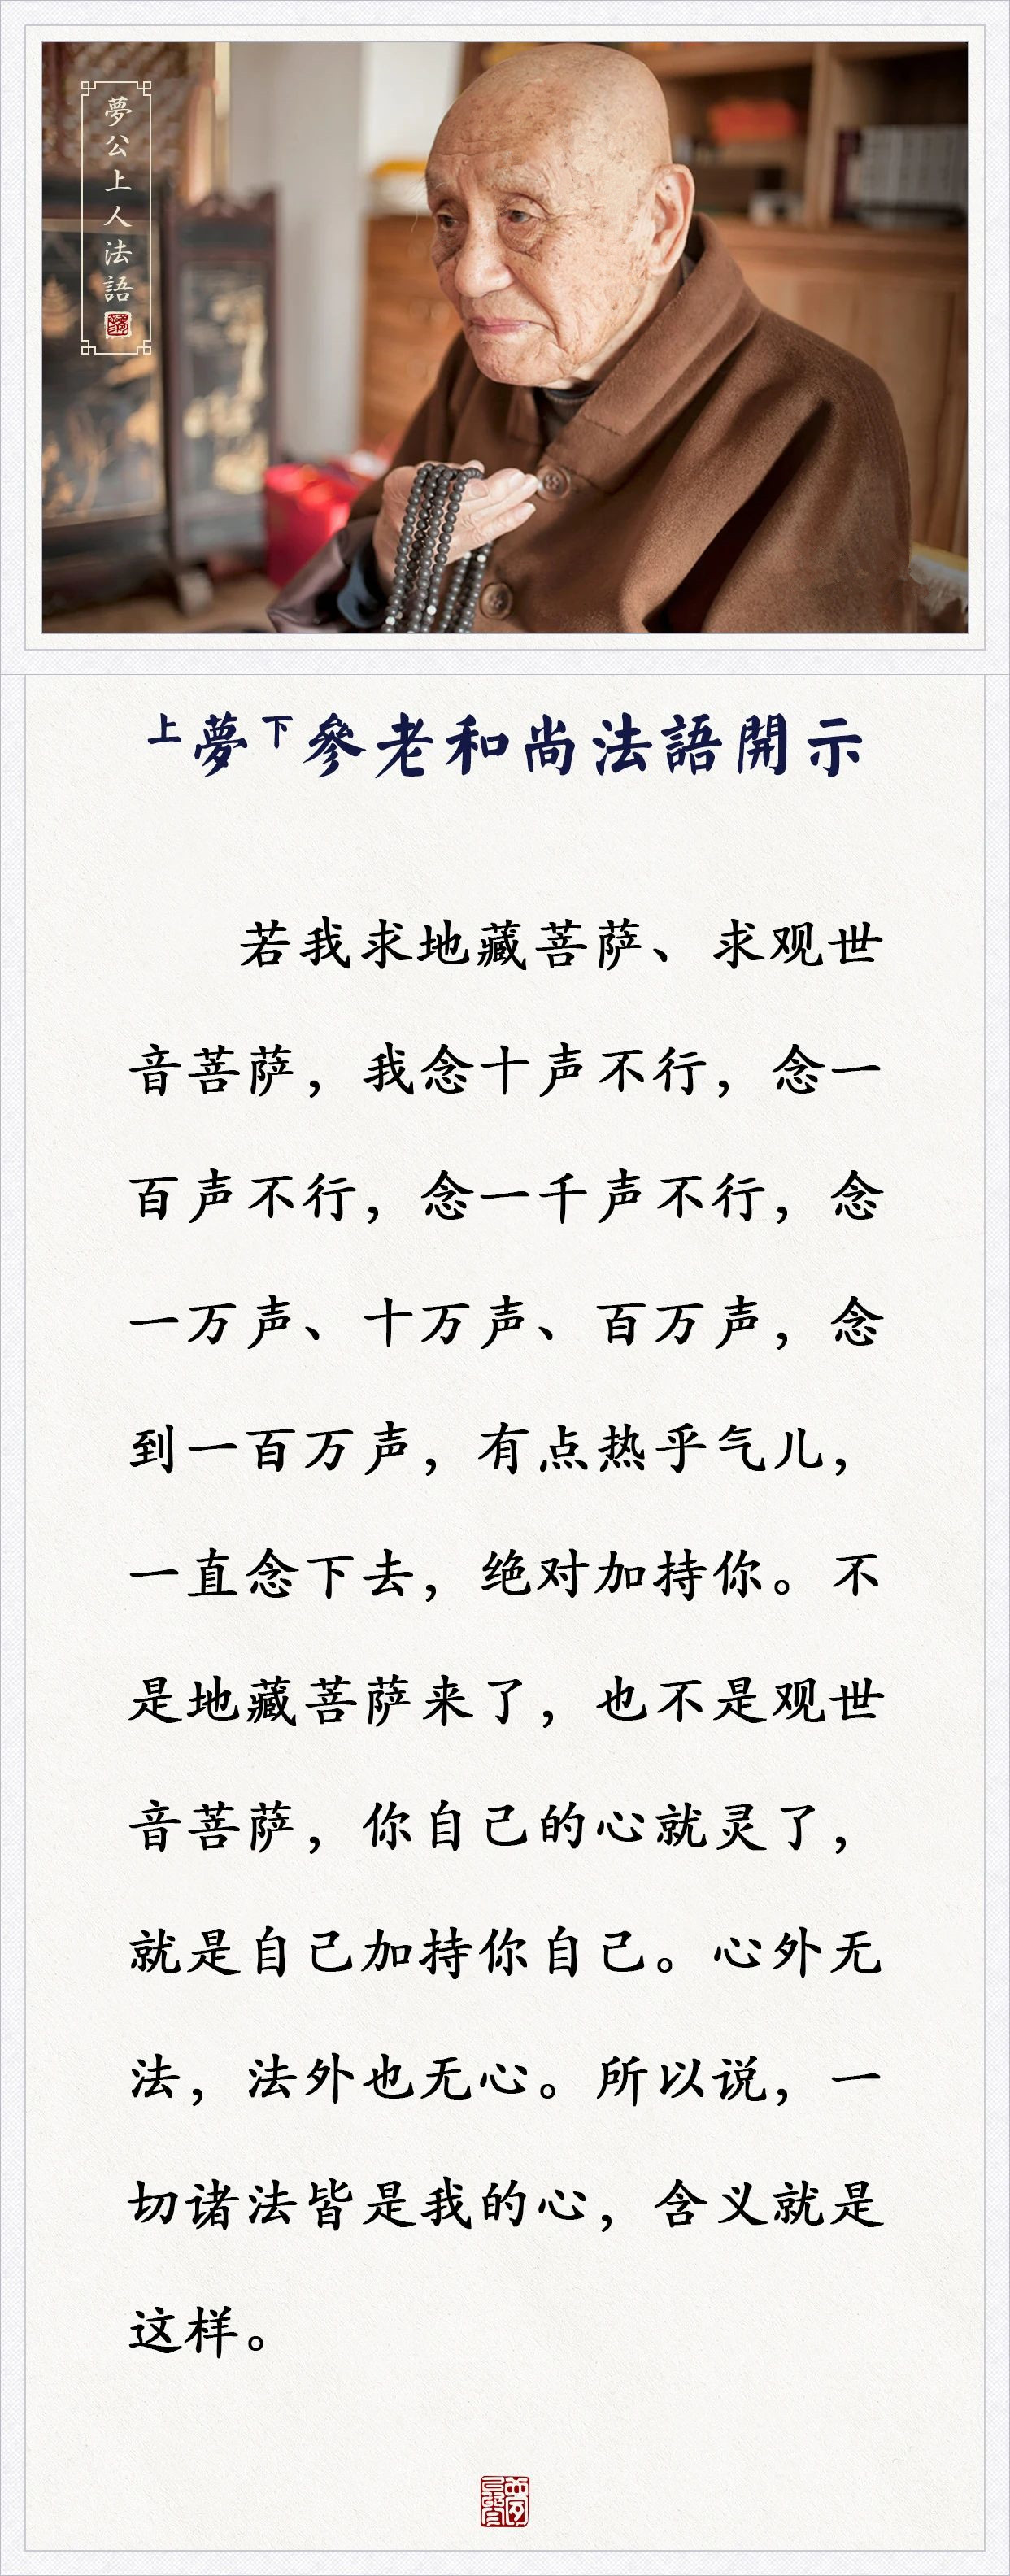 夢公上人法語
上夢下參老和尚法語開示
若我求地藏菩萨、求观世
音菩萨，我念十声不行，念一
百声不行，念一千声不行，念
一万声、十万声、百万声，念
到一百万声，有点热乎气儿，
一直念下去，绝对加持你。不
是地藏菩萨来了，也不是观世
音菩萨，你自己的心就灵了，
就是自己加持你自己。心外无
法，法外也无心。所以说，一
切诸法皆是我的心，含义就是
这样。